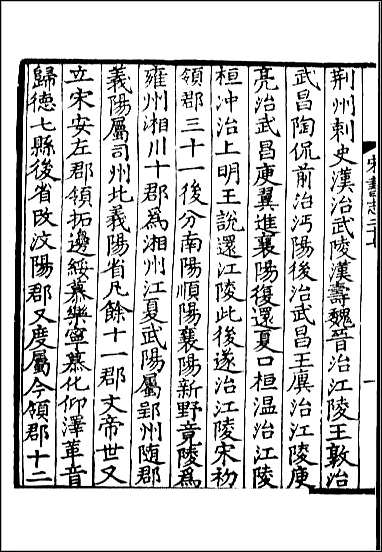 宋書志二十七
荆州刺史漢治武陵漢壽魏晉治江陵王敦治
武昌陶侃前治沔陽後治武昌王廙治江陵庾
亮治武昌庾翼進襄陽復還夏口桓温治江陵
桓冲治上明王說還江陵此後遂治江陵宋初
領郡三十一後分南陽順陽襄陽新野竟陵爲
雍州湘川十郡爲湘州江夏武陽屬郢州随郡
義陽屬司州北義陽省凡餘十一郡文帝世又
立宋安左郡領拓邊綏慕樂寧慕化仰澤革音
歸德七縣後省改汶陽郡又度屬今領郡十二